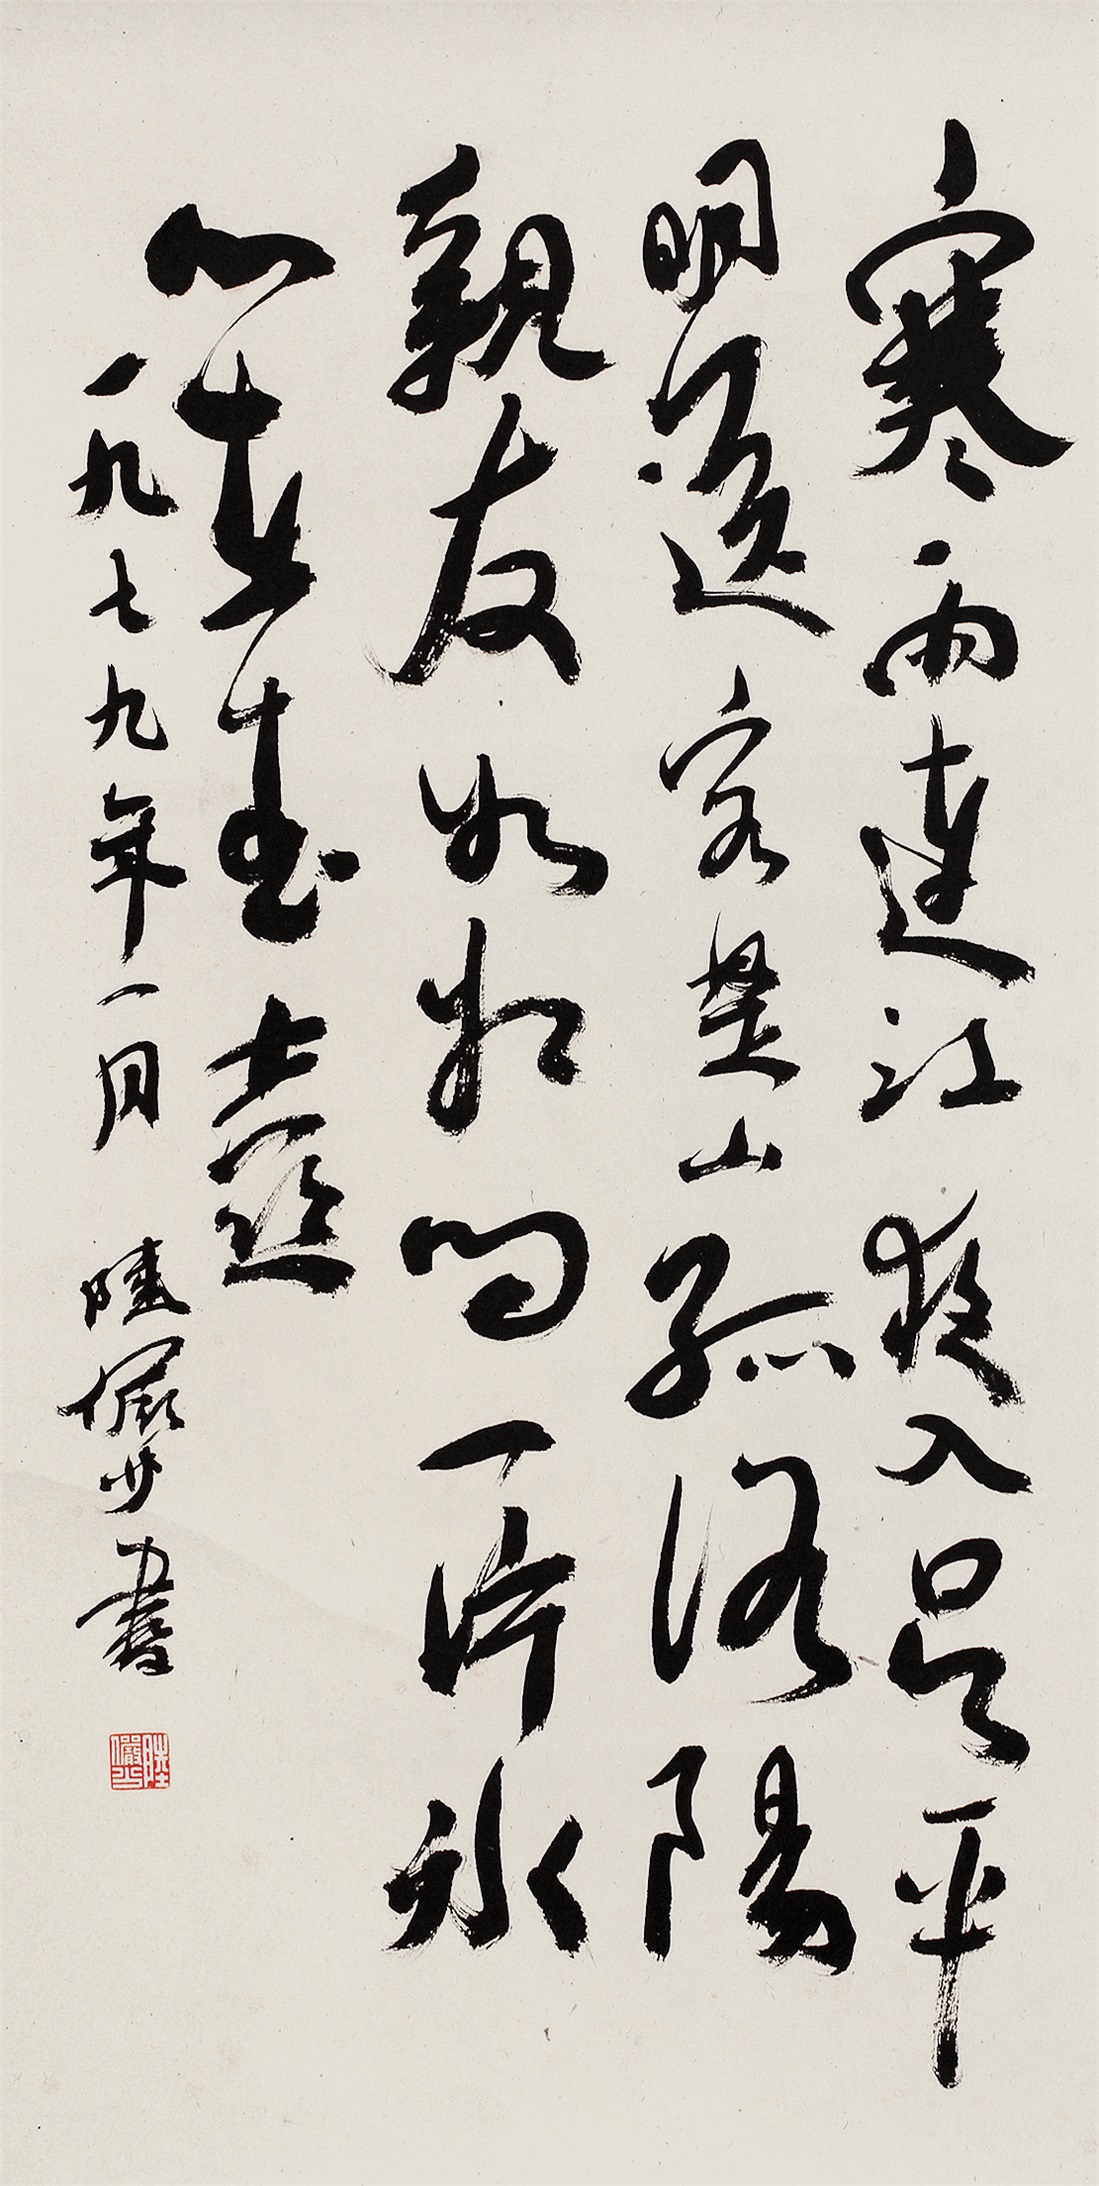 寒雨連江夜入吳平
明送客楚山孤洛陽
親友如相問一片冰
心在玉壺
一九七九年一月 陸儼少書
陸儼少